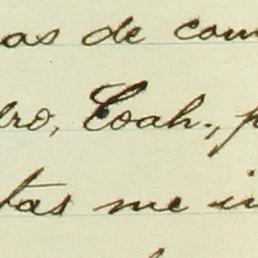 as de com
dro, Coah., p
tas me i